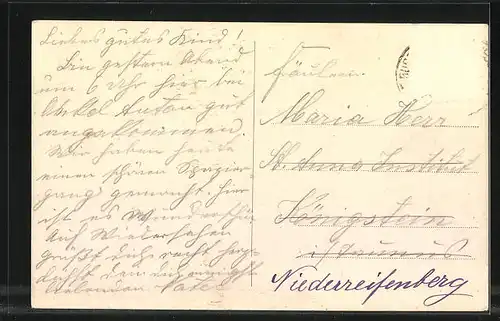 Liebes gutes Kind!
Bin gestern Abend
um 6 Uhr hier bei
Onkel Anton gut
angekommen.
Wir haben heute
einen schönen Spazier-
gang gemacht. Hier
ist es wunderschön
Auf Wiedersehen
grüßt dich recht herz-
lichst dein dich
liebender Vater
Fräulein
Maria Herr
St. Anna Institut
Königstein
i/Taunus
Niederreifenberg